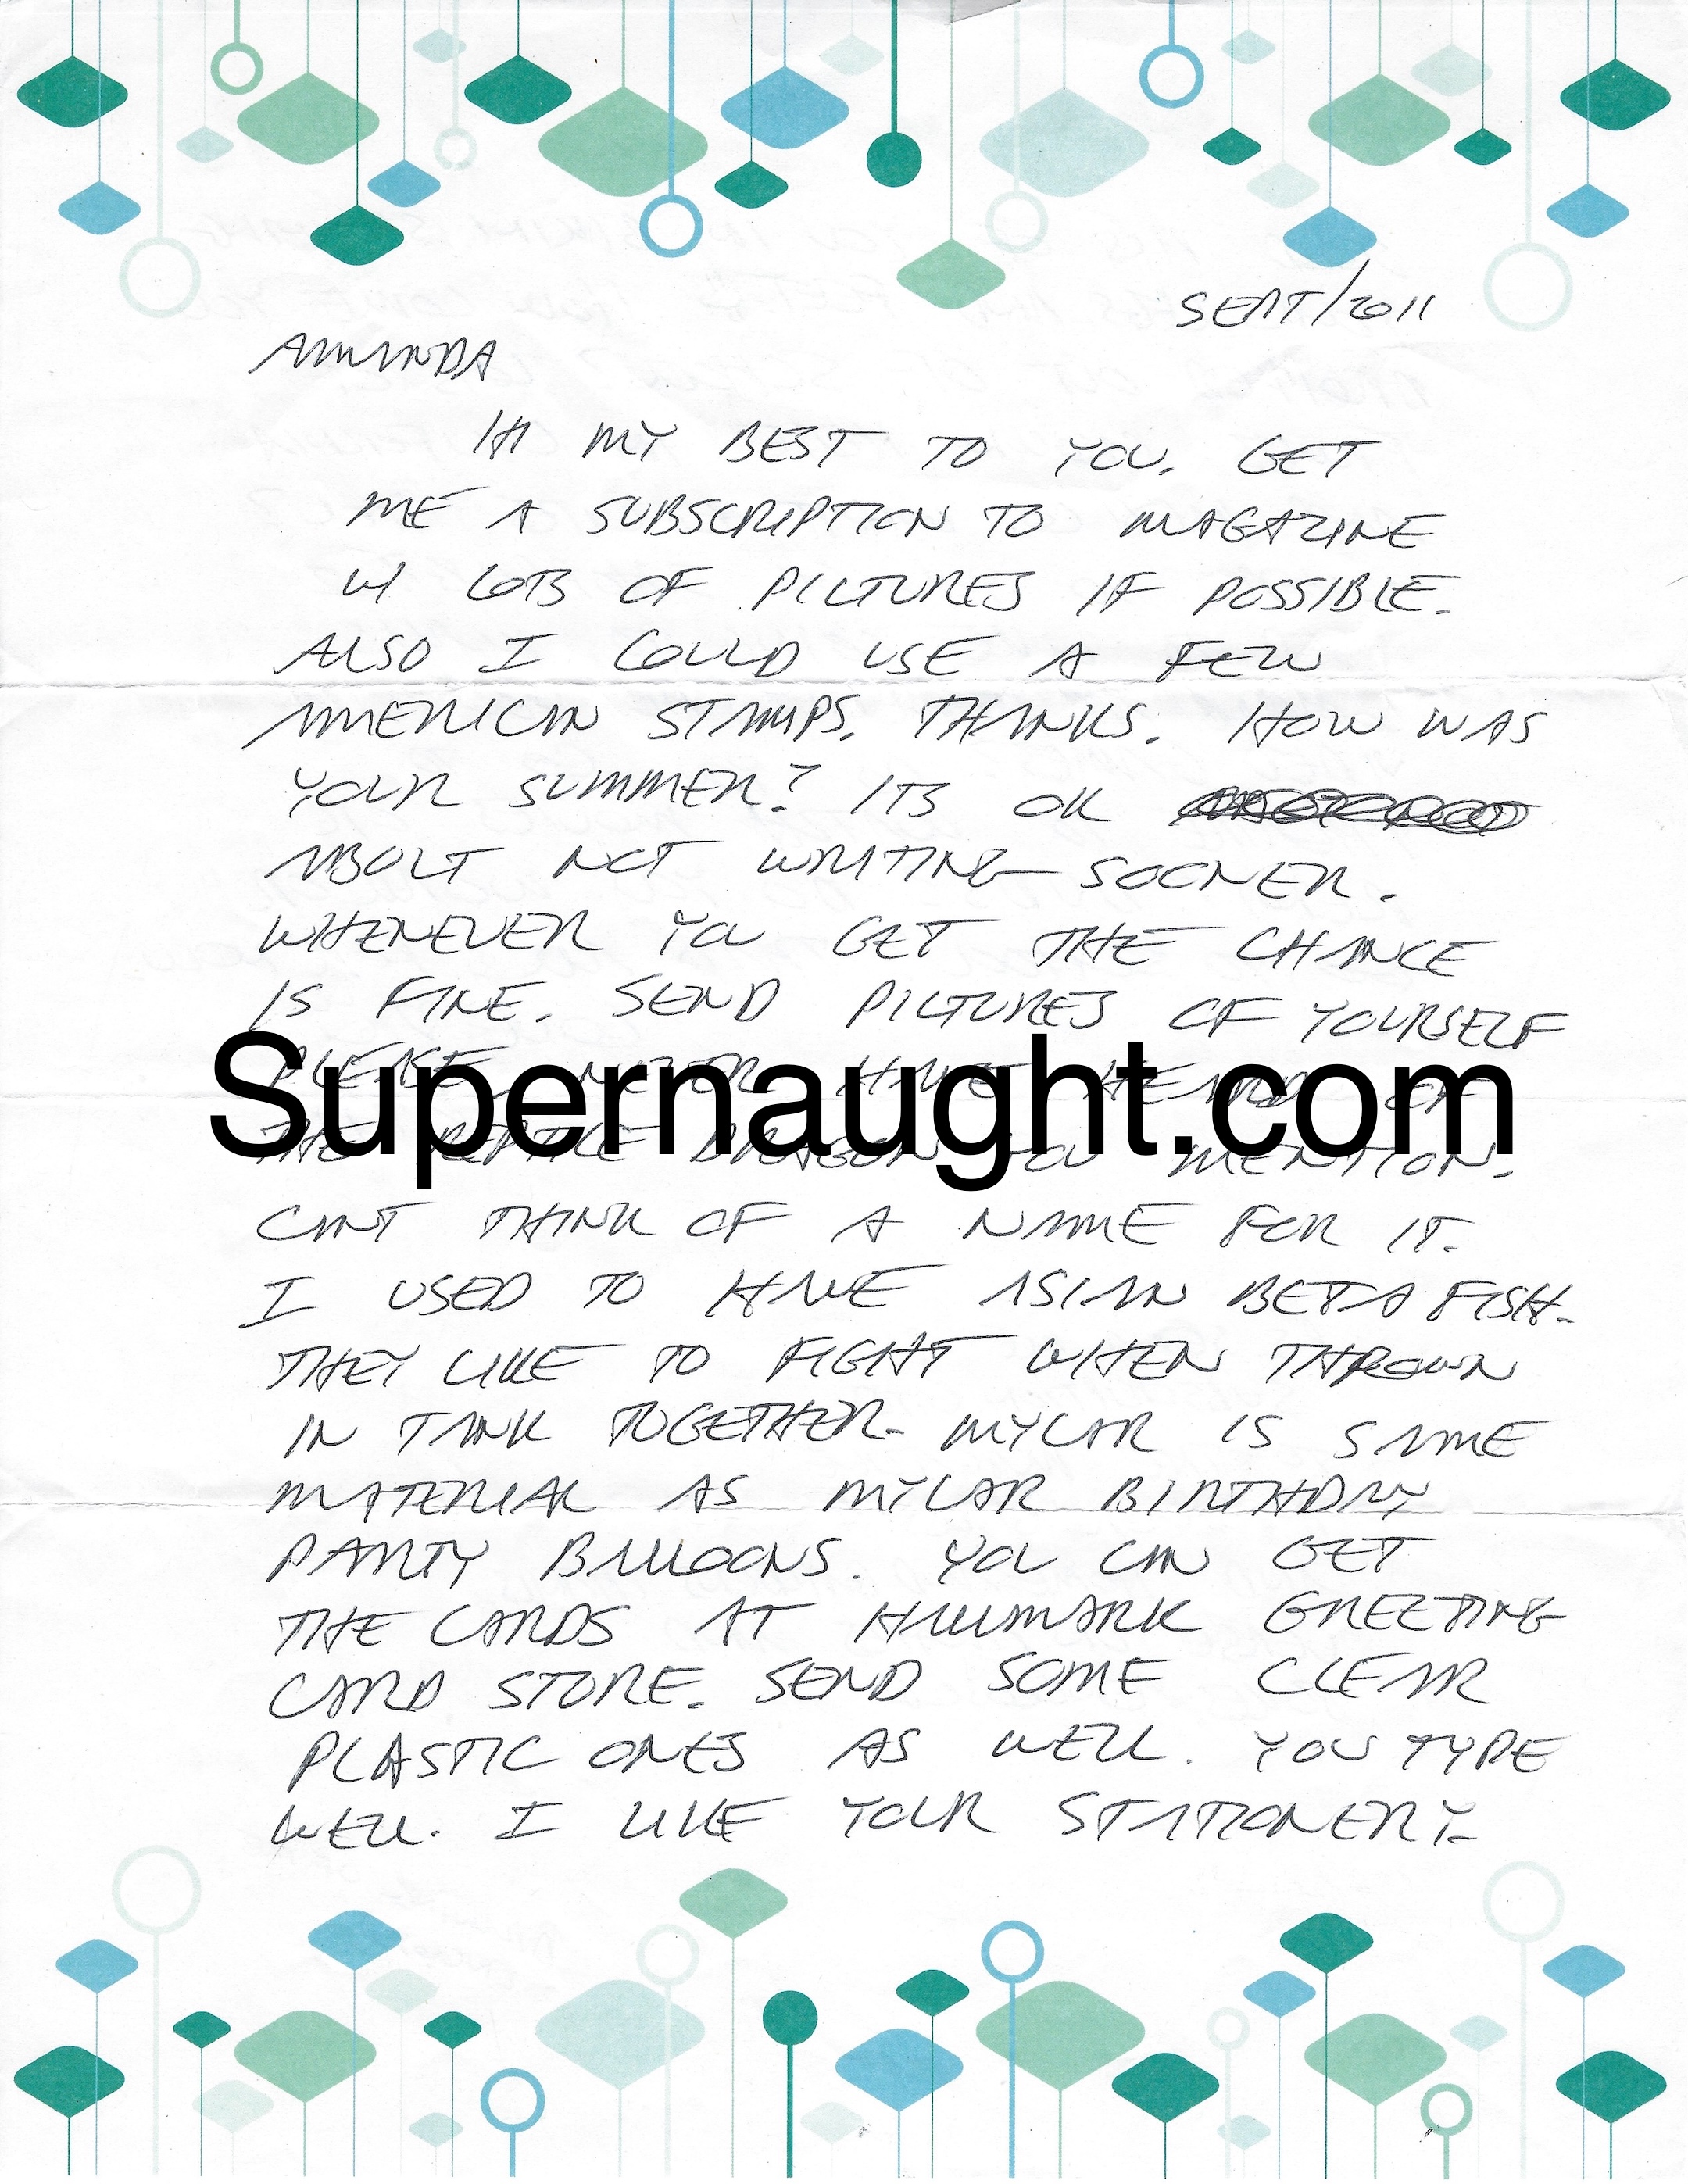 SEPT/2011
AMANDA
HI MY BEST TO YOU. GET
ME A SUBSCRIPTION TO MAGAZINE
W/ LOTS OF PICTURES IF POSSIBLE.
ALSO I COULD USE A FEW
AMERICAN STAMPS. THANKS. HOW WAS
YOUR SUMMER? ITS OK
ABOUT NOT WRITING SOONER.
WHENEVER YOU GET THE CHANCE
IS FINE. SEND PICTURES OF YOURSELF
PLEASE. NEVER HAVE HEARD OF
Supernaught.com
THE REPTILE DRAGON YOU MENTION.
CANT THINK OF A NAME FOR IT.
I USED TO HAVE ASIAN BETA FISH.
THEY LIKE TO FIGHT WHEN THROWN
IN TANK TOGETHER. MYLAR IS SAME
MATERIAL AS MYLAR BIRTHDAY
PARTY BALLOONS. YOU CAN GET
THE CARDS AT HALLMARK GREETING
CARD STORE. SEND SOME CLEAR
PLASTIC ONES AS WELL. YOU TYPE
WELL. I LIKE YOUR STATIONERY.